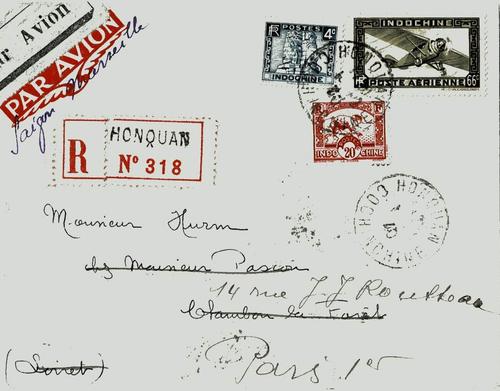 Par Avion
PAR AVION
Saigon Marseille
POSTES
4c
INDOCHINE
INDOCHINE
RF
POSTE AÉRIENNE
66c
INDO 20c CHINE
HONQUAN
R
N° 318
HONQUAN
Monsieur Hurm
chez Monsieur Pascon
14 rue J. J. Rousseau
Chambon la Forêt
(Loiret)
Paris 1er